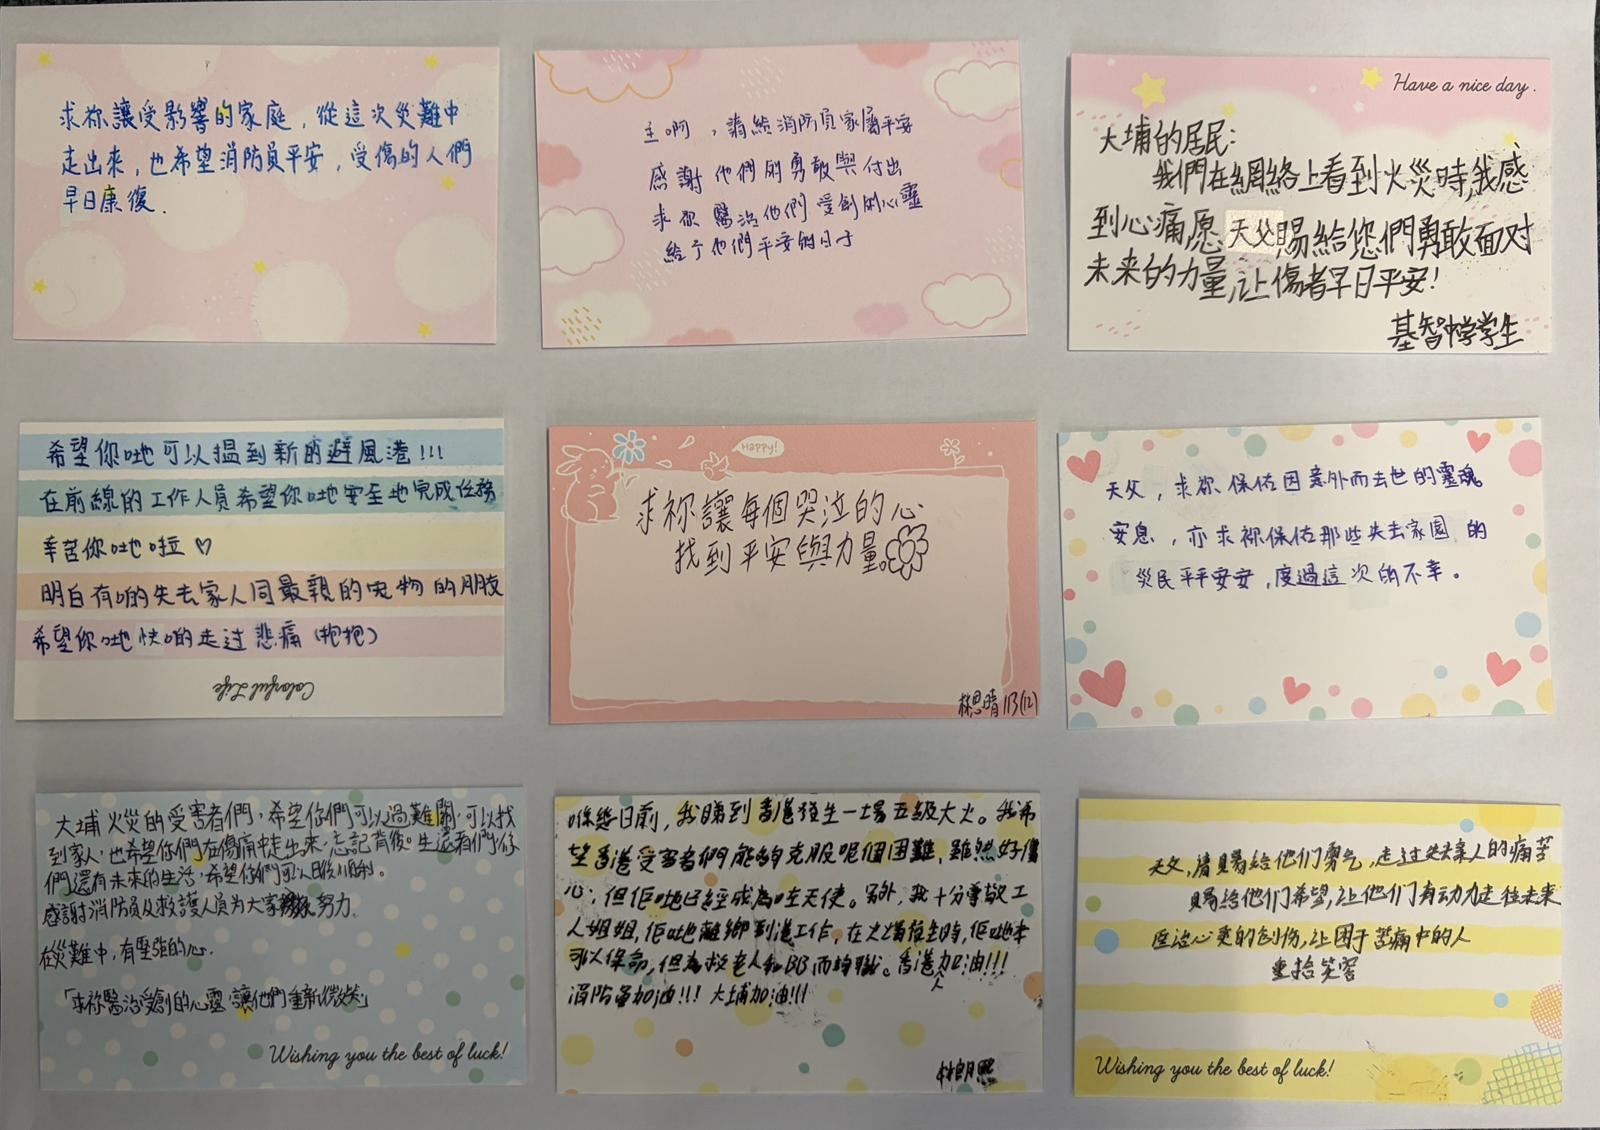 求祢讓受影響的家庭，從這次災難中
走出來，也希望消防員平安，受傷的人們
早日康復．
主啊，請給消防員家屬平安
感謝他們的勇敢與付出
求祢醫治他們受創的心靈
給予他們平安的日子
Have a nice day.
大埔的居民：
我們在網絡上看到火災時，我感
到心痛愿天父賜給您們勇敢面对
未來的力量，让傷者早日平安！
基智中学学生
希望你哋可以搵到新的避風港！！！
在前線的工作人員希望你哋安全地完成任務
辛苦你哋啦♡
明白有啲失去家人同最親的寵物的朋友
希望你哋快啲走过悲痛（抱抱）
Colorful Life
Happy!
求祢讓每個哭泣的心
找到平安與力量。
林思晴 1B(12)
天父，求祢保佑因意外而去世的靈魂
安息，亦求祢保佑那些失去家園的
災民平平安安，度過這次的不幸。
大埔火災的受害者們，希望你們可以過難關，可以找
到家人，也希望你們在傷痛中走出來，忘記背後。生還者們，你
們還有未來的生活，希望你們可以日後順利。
感謝消防員及救護人員为大家努力．
在災難中，有堅強的心．
「求祢醫治受創的心靈，讓他們重新微笑」
Wishing you the best of luck!
喺幾日前，我睇到香港發生一場五級大火。我希
望香港受害者們能夠克服呢個困難，雖然好傷
心，但佢哋已經成為咗天使。另外，我十分尊敬工
人姐姐，佢哋離鄉到港工作，在火災發生時，佢哋本
可以保命，但為救老人和BB而殉職。香港人加油！！！
消防員加油！！！大埔加油！！！
林朗熙
天父，请赐给他们勇气，走过失去亲人的痛苦
赐给他们希望，让他们有动力走往未来
医治心灵的创伤，让困于苦痛中的人
重拾笑容
Wishing you the best of luck!